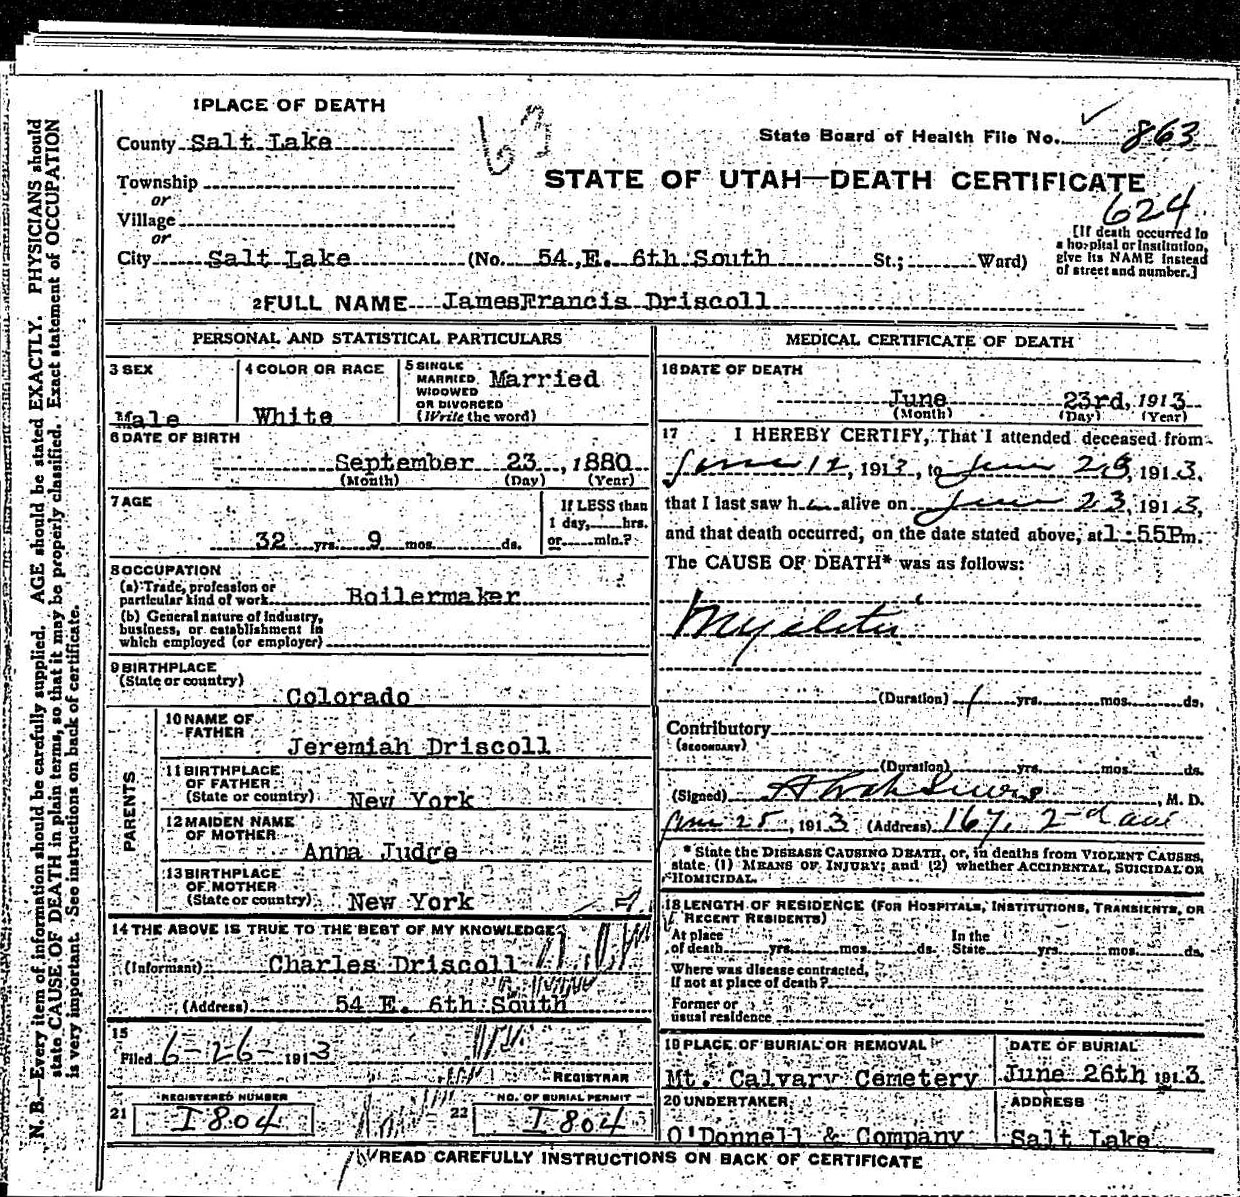 1 PLACE OF DEATH
County Salt Lake
63
State Board of Health File No. 863
Township
or
Village
or
STATE OF UTAH—DEATH CERTIFICATE
624
[If death occurred in
a hospital or institution,
give its NAME instead
of street and number.]
City Salt Lake (No. 54 E. 6th South St.; Ward)
2 FULL NAME JamesFrancis Driscoll
PERSONAL AND STATISTICAL PARTICULARS
3 SEX
Male
4 COLOR OR RACE
White
5 SINGLE
MARRIED
WIDOWED
OR DIVORCED
(Write the word)
Married
6 DATE OF BIRTH
September 23, 1880
(Month) (Day) (Year)
7 AGE
32 yrs. 9 mos. ds.
If LESS than
1 day, hrs.
or min.?
8 OCCUPATION
(a) Trade, profession or
particular kind of work Boilermaker
(b) General nature of industry,
business, or establishment in
which employed (or employer)
9 BIRTHPLACE
(State or country)
Colorado
PARENTS
10 NAME OF
FATHER
Jeremiah Driscoll
11 BIRTHPLACE
OF FATHER
(State or country) New York
12 MAIDEN NAME
OF MOTHER
Anna Judge
13 BIRTHPLACE
OF MOTHER
(State or country) New York
14 THE ABOVE IS TRUE TO THE BEST OF MY KNOWLEDGE
(Informant) Charles Driscoll
(Address) 54 E. 6th South
15
Filed 6-26-1913
REGISTRAR
REGISTERED NUMBER
21 I804
NO. OF BURIAL PERMIT
22 I804
MEDICAL CERTIFICATE OF DEATH
16 DATE OF DEATH
June 23rd, 1913
(Month) (Day) (Year)
17 I HEREBY CERTIFY, That I attended deceased from
June 12, 1913, to June 23, 1913,
that I last saw h alive on June 23, 1913,
and that death occurred, on the date stated above, at 1:55Pm.
The CAUSE OF DEATH* was as follows:
Myelitis
(Duration) 1 yrs. mos. ds.
Contributory
(SECONDARY)
(Duration) yrs. mos. ds.
(Signed) , M. D.
June 25, 1913 (Address) 167, 2nd ave
* State the DISEASE CAUSING DEATH, or, in deaths from VIOLENT CAUSES,
state (1) MEANS OF INJURY; and (2) whether ACCIDENTAL, SUICIDAL OR
HOMICIDAL.
18 LENGTH OF RESIDENCE (FOR HOSPITALS, INSTITUTIONS, TRANSIENTS, OR
RECENT RESIDENTS)
At place
of death yrs. mos. ds.
In the
State yrs. mos. ds.
Where was disease contracted,
If not at place of death?
Former or
usual residence
19 PLACE OF BURIAL OR REMOVAL
Mt. Calvary Cemetery
DATE OF BURIAL
June 26th 1913
20 UNDERTAKER
O'Donnell & Company
ADDRESS
Salt Lake
READ CAREFULLY INSTRUCTIONS ON BACK OF CERTIFICATE
N. B.—Every item of information should be carefully supplied. AGE should be stated EXACTLY. PHYSICIANS should
state CAUSE OF DEATH in plain terms, so that it may be properly classified. Exact statement of OCCUPATION
is very important. See instructions on back of certificate.